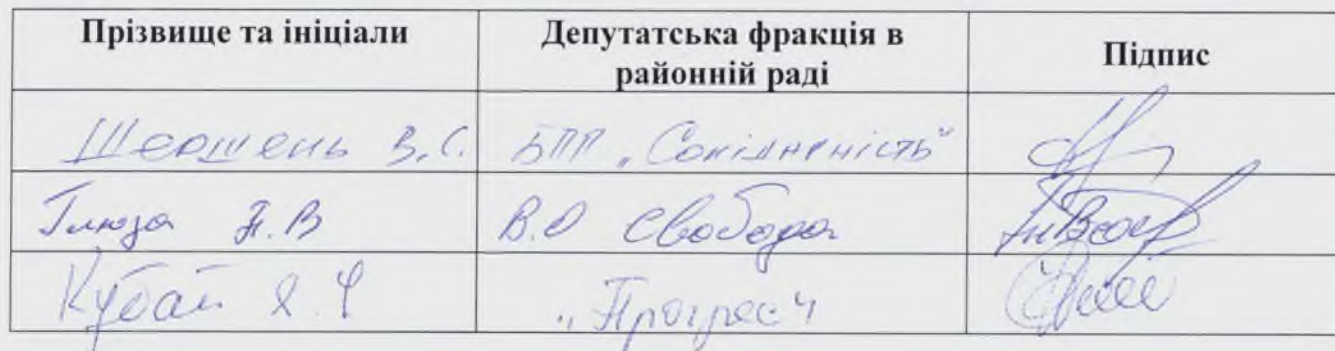 Прізвище та ініціали Депутатська фракція в районній раді Підпис
Шершень В.С. БПП „Солідарність“
Глюза Л.В В.О Свобода
Кубай Я.Ч „Прогрес"